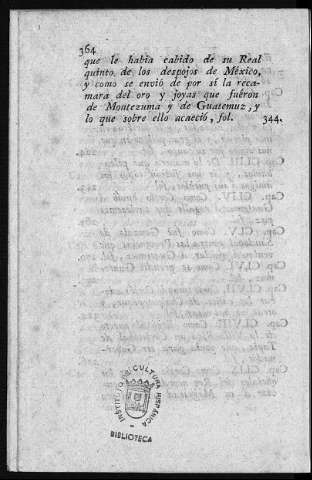 364
que le habia cabido de su Real
quinto de los despojos de México,
y como se envió de por sí la reca-
mara del oro y joyas que fuéron
de Montezuma y de Guatemuz, y
lo que sobre ello acaeció, fol. 344.
INSTITUTO DE CULTURA HISPÁNICA
BIBLIOTECA